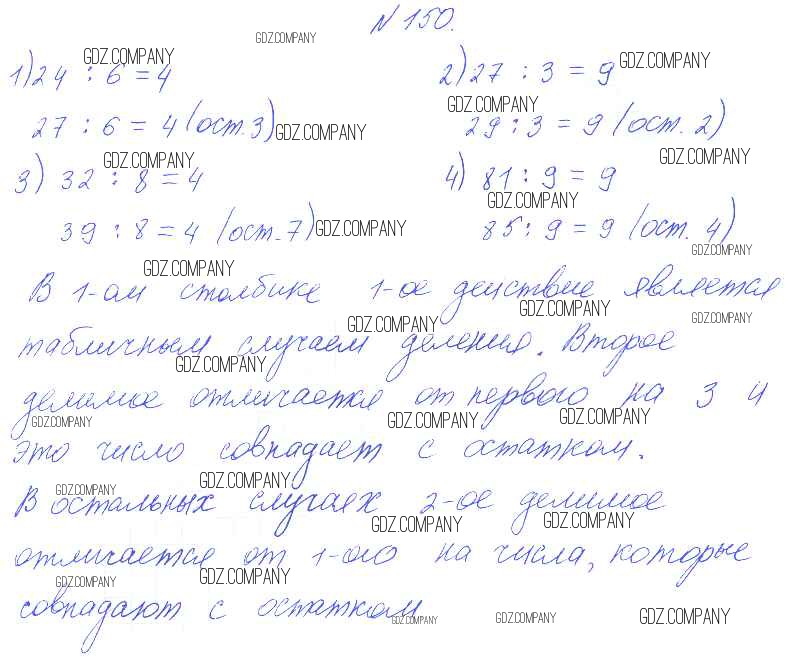 N 150.
GDZ.COMPANY
1) 24 : 6 = 4 GDZ.COMPANY 2) 27 : 3 = 9 GDZ.COMPANY
27 : 6 = 4 (ост. 3) GDZ.COMPANY 29 : 3 = 9 (ост. 2) GDZ.COMPANY
3) 32 : 8 = 4 GDZ.COMPANY 4) 81 : 9 = 9 GDZ.COMPANY
39 : 8 = 4 (ост. 7) GDZ.COMPANY 85 : 9 = 9 (ост. 4) GDZ.COMPANY
GDZ.COMPANY GDZ.COMPANY
В 1-ом столбике 1-ое действие является
GDZ.COMPANY GDZ.COMPANY GDZ.COMPANY
табличным случаем деления. Второе
GDZ.COMPANY
делимое отличается от первого на 3 и
GDZ.COMPANY GDZ.COMPANY GDZ.COMPANY
это число совпадает с остатком.
GDZ.COMPANY GDZ.COMPANY
В остальных случаях 2-ое делимое
GDZ.COMPANY GDZ.COMPANY
отличается от 1-ого на числа, которые
GDZ.COMPANY GDZ.COMPANY
совпадают с остатком
GDZ.COMPANY GDZ.COMPANY GDZ.COMPANY